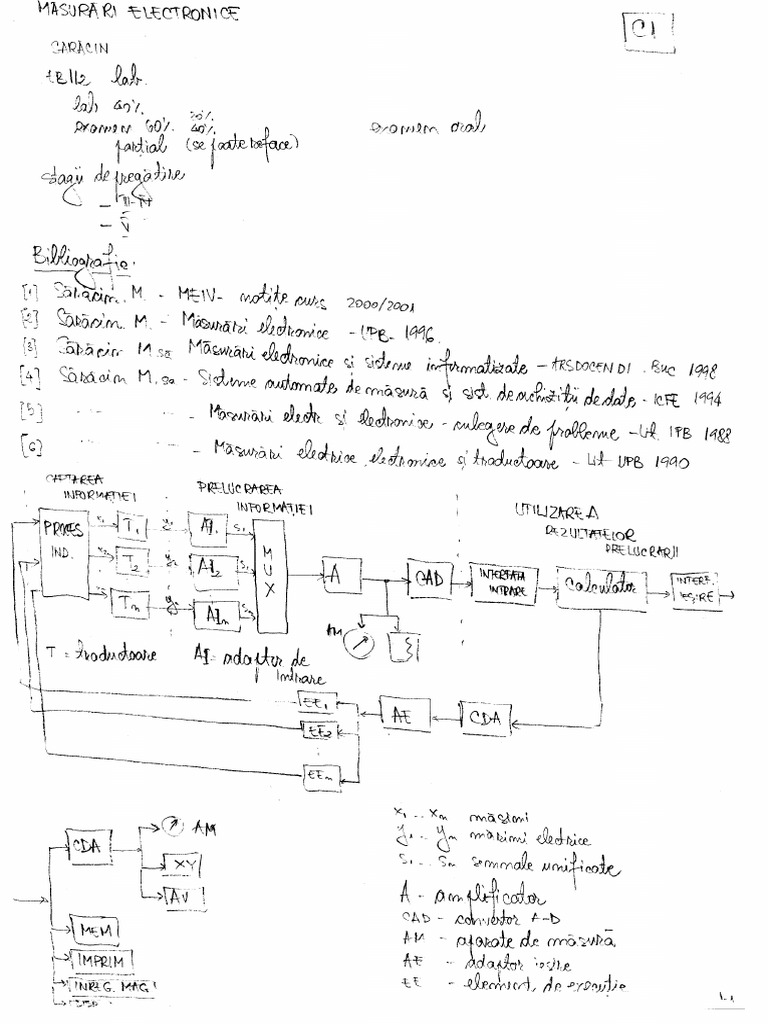 MĂSURĂRI ELECTRONICE
C1
SĂRĂCIN
lab.
lab 40%
examen 60%
20%
40%
examen oral
parțial (se poate reface)
stagii de pregătire
- III-IV
- V
Bibliografie.
[1] Sărăcin M. - MEIV - notițe curs 2000/2001
[2] Sărăcin M. - Măsurări electronice - UPB - 1996.
[3] Sărăcin M. șa Măsurări electronice și sisteme informatizate - ARSDOCENDI. Buc 1998
[4] Sărăcin M. șa - Sisteme automate de măsură și sist. de achiziții de date - ICPE 1994
[5] " " - Măsurări electr și electronice - culegere de probleme - Lit. IPB 1988
[6] " " - Măsurări electrice, electronice și traductoare - Lit UPB 1990
CAPTAREA INFORMAȚIEI
PRELUCRAREA INFORMAȚIEI
UTILIZAREA REZULTATELOR PRELUCRĂRII
PROCES IND.
x1 T1 y1 AI1 s1
x2 T2 y2 AI2 s2
Tn yn AIn sn
MUX
A
CAD
INTERFAȚA INTRARE
Calculator
INTERF. IEȘIRE
AM
T = traductoare
AI = adaptor de intrare
EE1
EE2
EEn
AE
CDA
CDA
AM
XY
AV
MEM
IMPRIM
INREG. MAG
x1 .. xn mărimi
y1 .. yn mărimi electrice
s1 .. sn semnale unificate
A - amplificator
CAD - convertor A-D
AM - aparate de măsură
AE - adaptor ieșire
EE - element de execuție
1.1